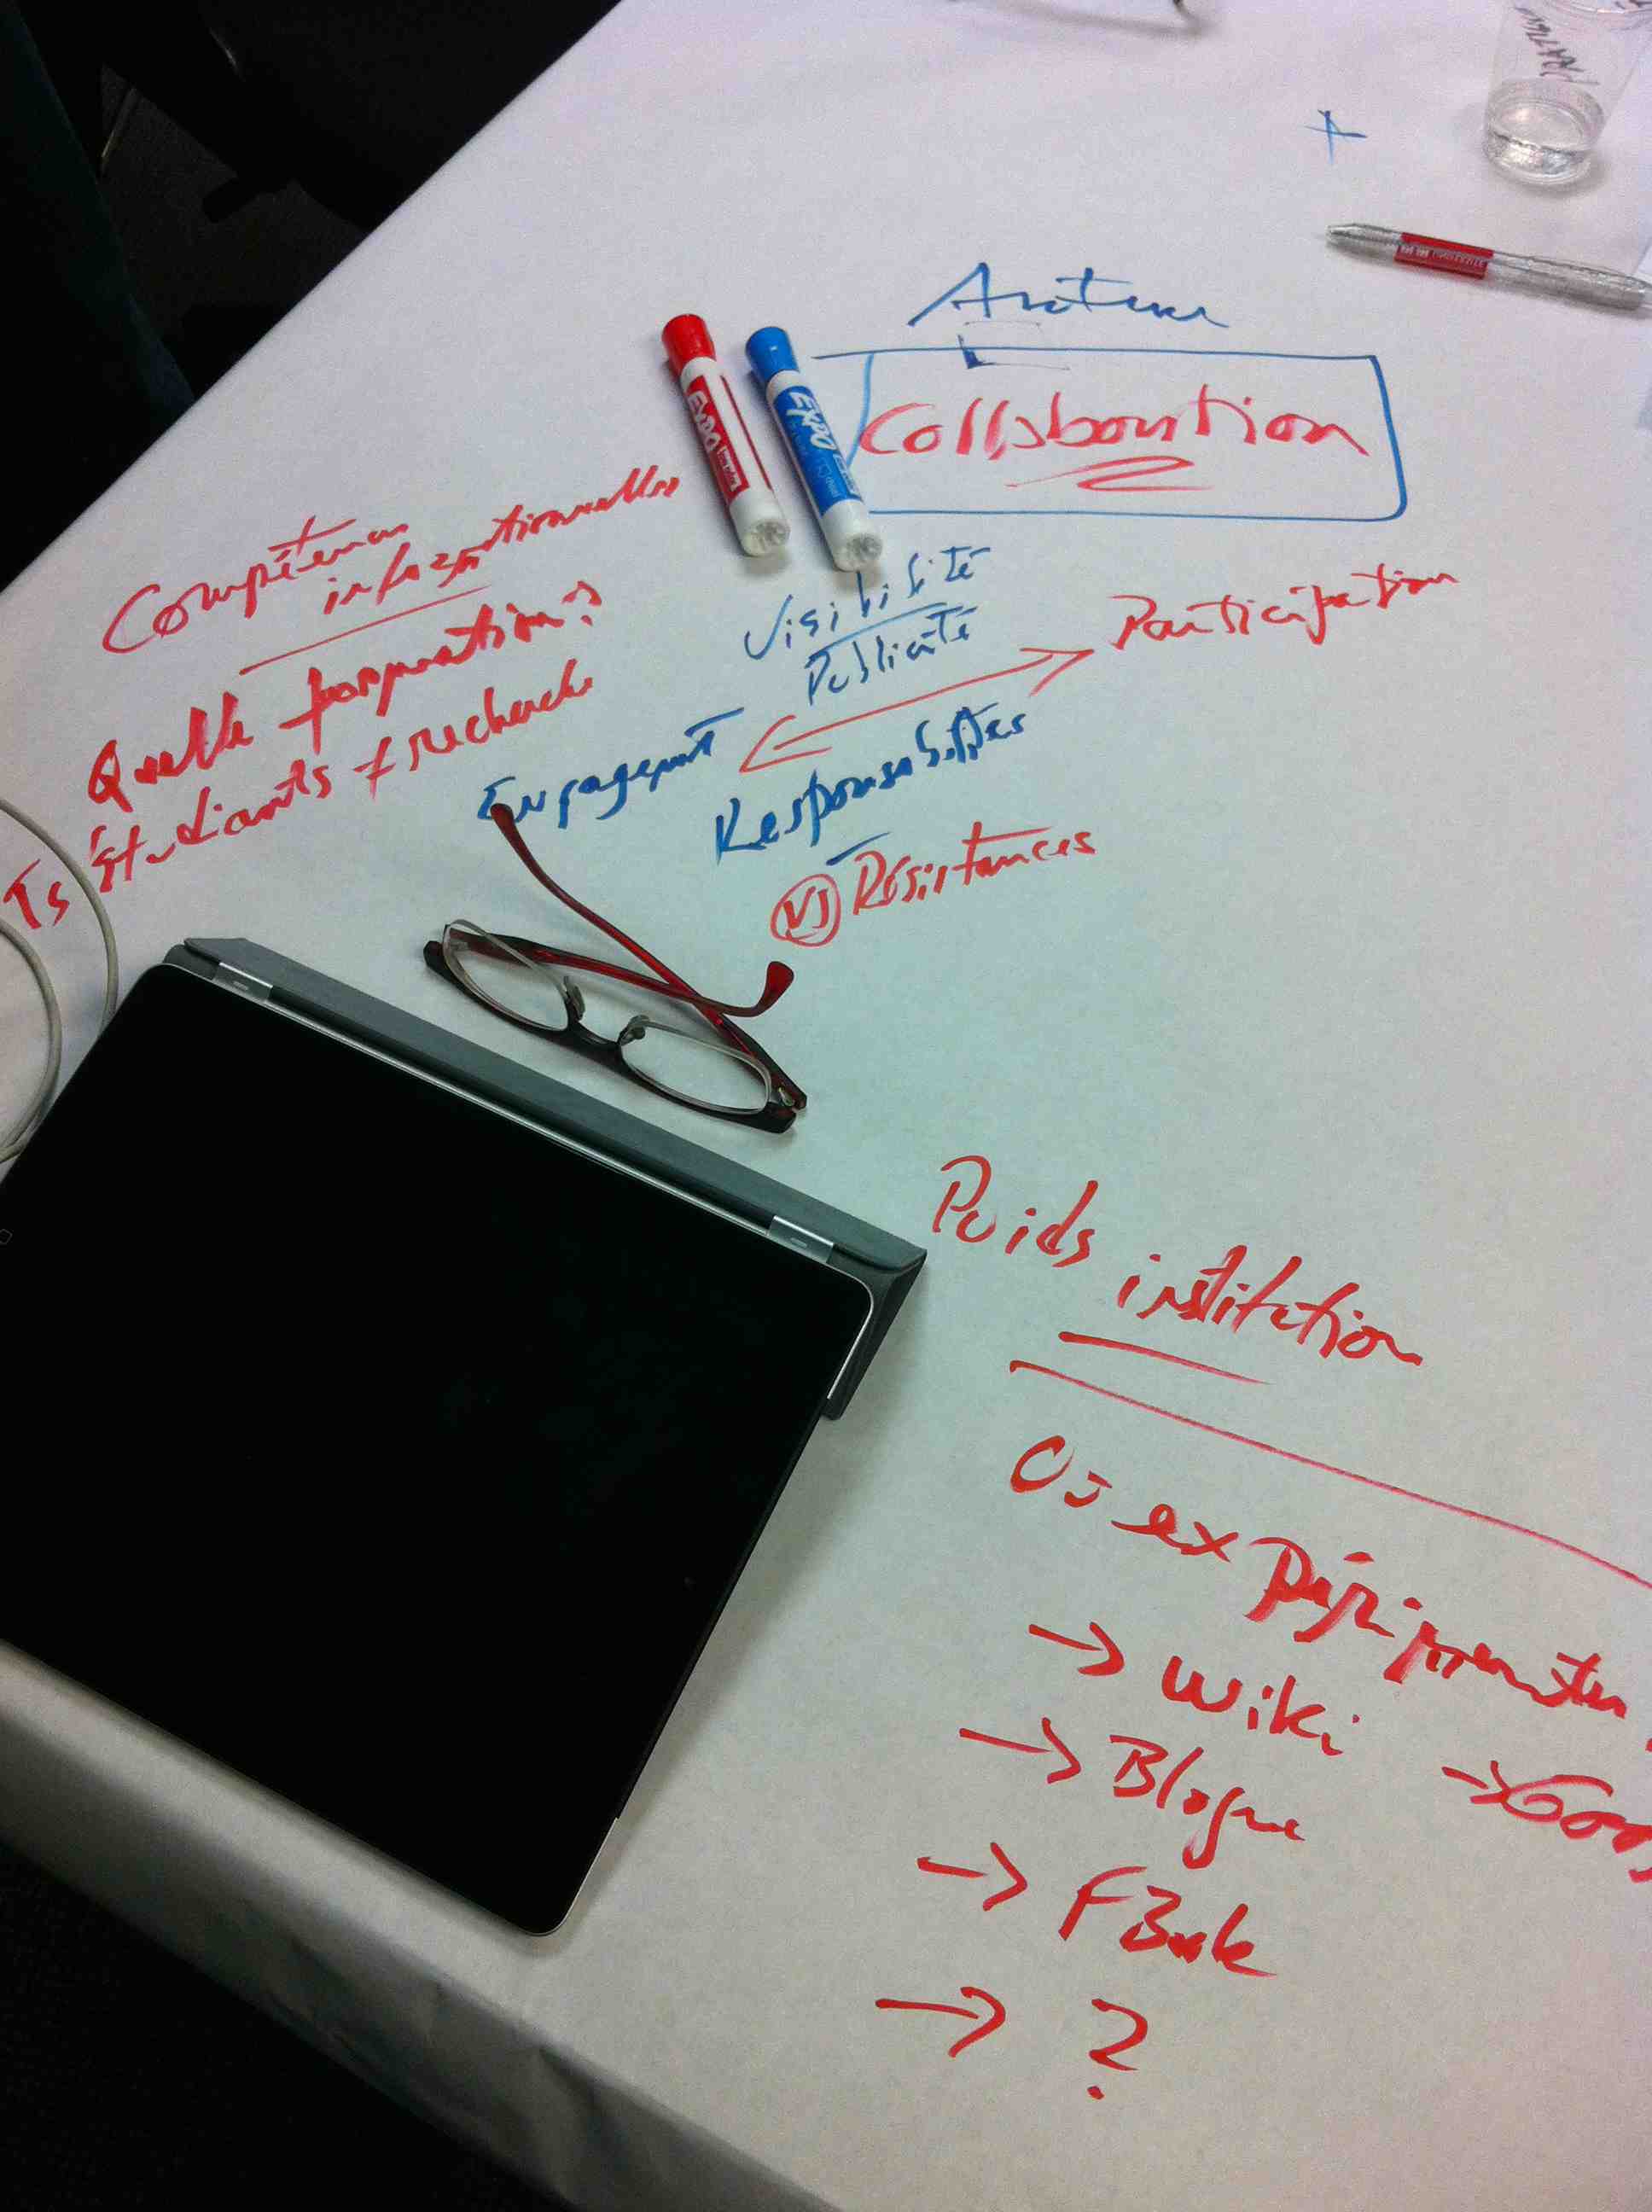 Collaboration
EXPO
EXPO
Compétences
informationnelles
Quelle formation?
Ts étudiants + recherche
Visibilité
Publicité
Participation
Engagemt
Responsabilités
VS Résistances
Poids
institution
Où expérimenter
→ Wiki
→ Blogue
→ FBook
→ ?